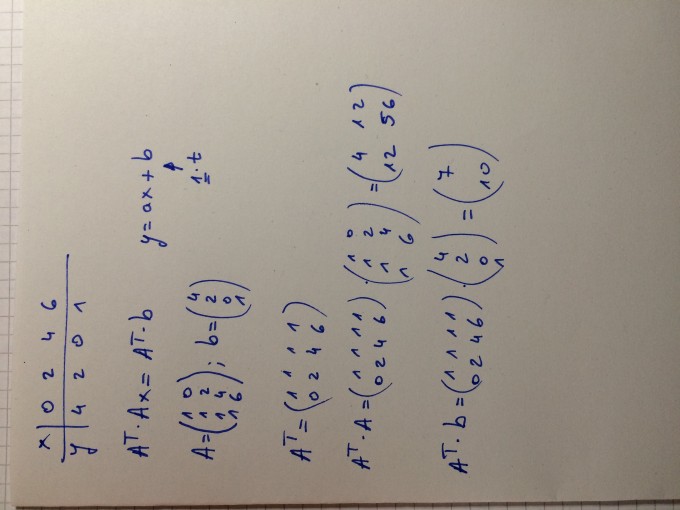 x | 0 2 4 6
y | 4 2 0 1
Aᵀ·Ax = Aᵀ·b y = ax + b
1·t
A = (1 0; 1 2; 1 4; 1 6); b = (4; 2; 0; 1)
Aᵀ = (1 1 1 1; 0 2 4 6)
Aᵀ·A = (1 1 1 1; 0 2 4 6)·(1 0; 1 2; 1 4; 1 6) = (4 12; 12 56)
Aᵀ·b = (1 1 1 1; 0 2 4 6)·(4; 2; 0; 1) = (7; 10)